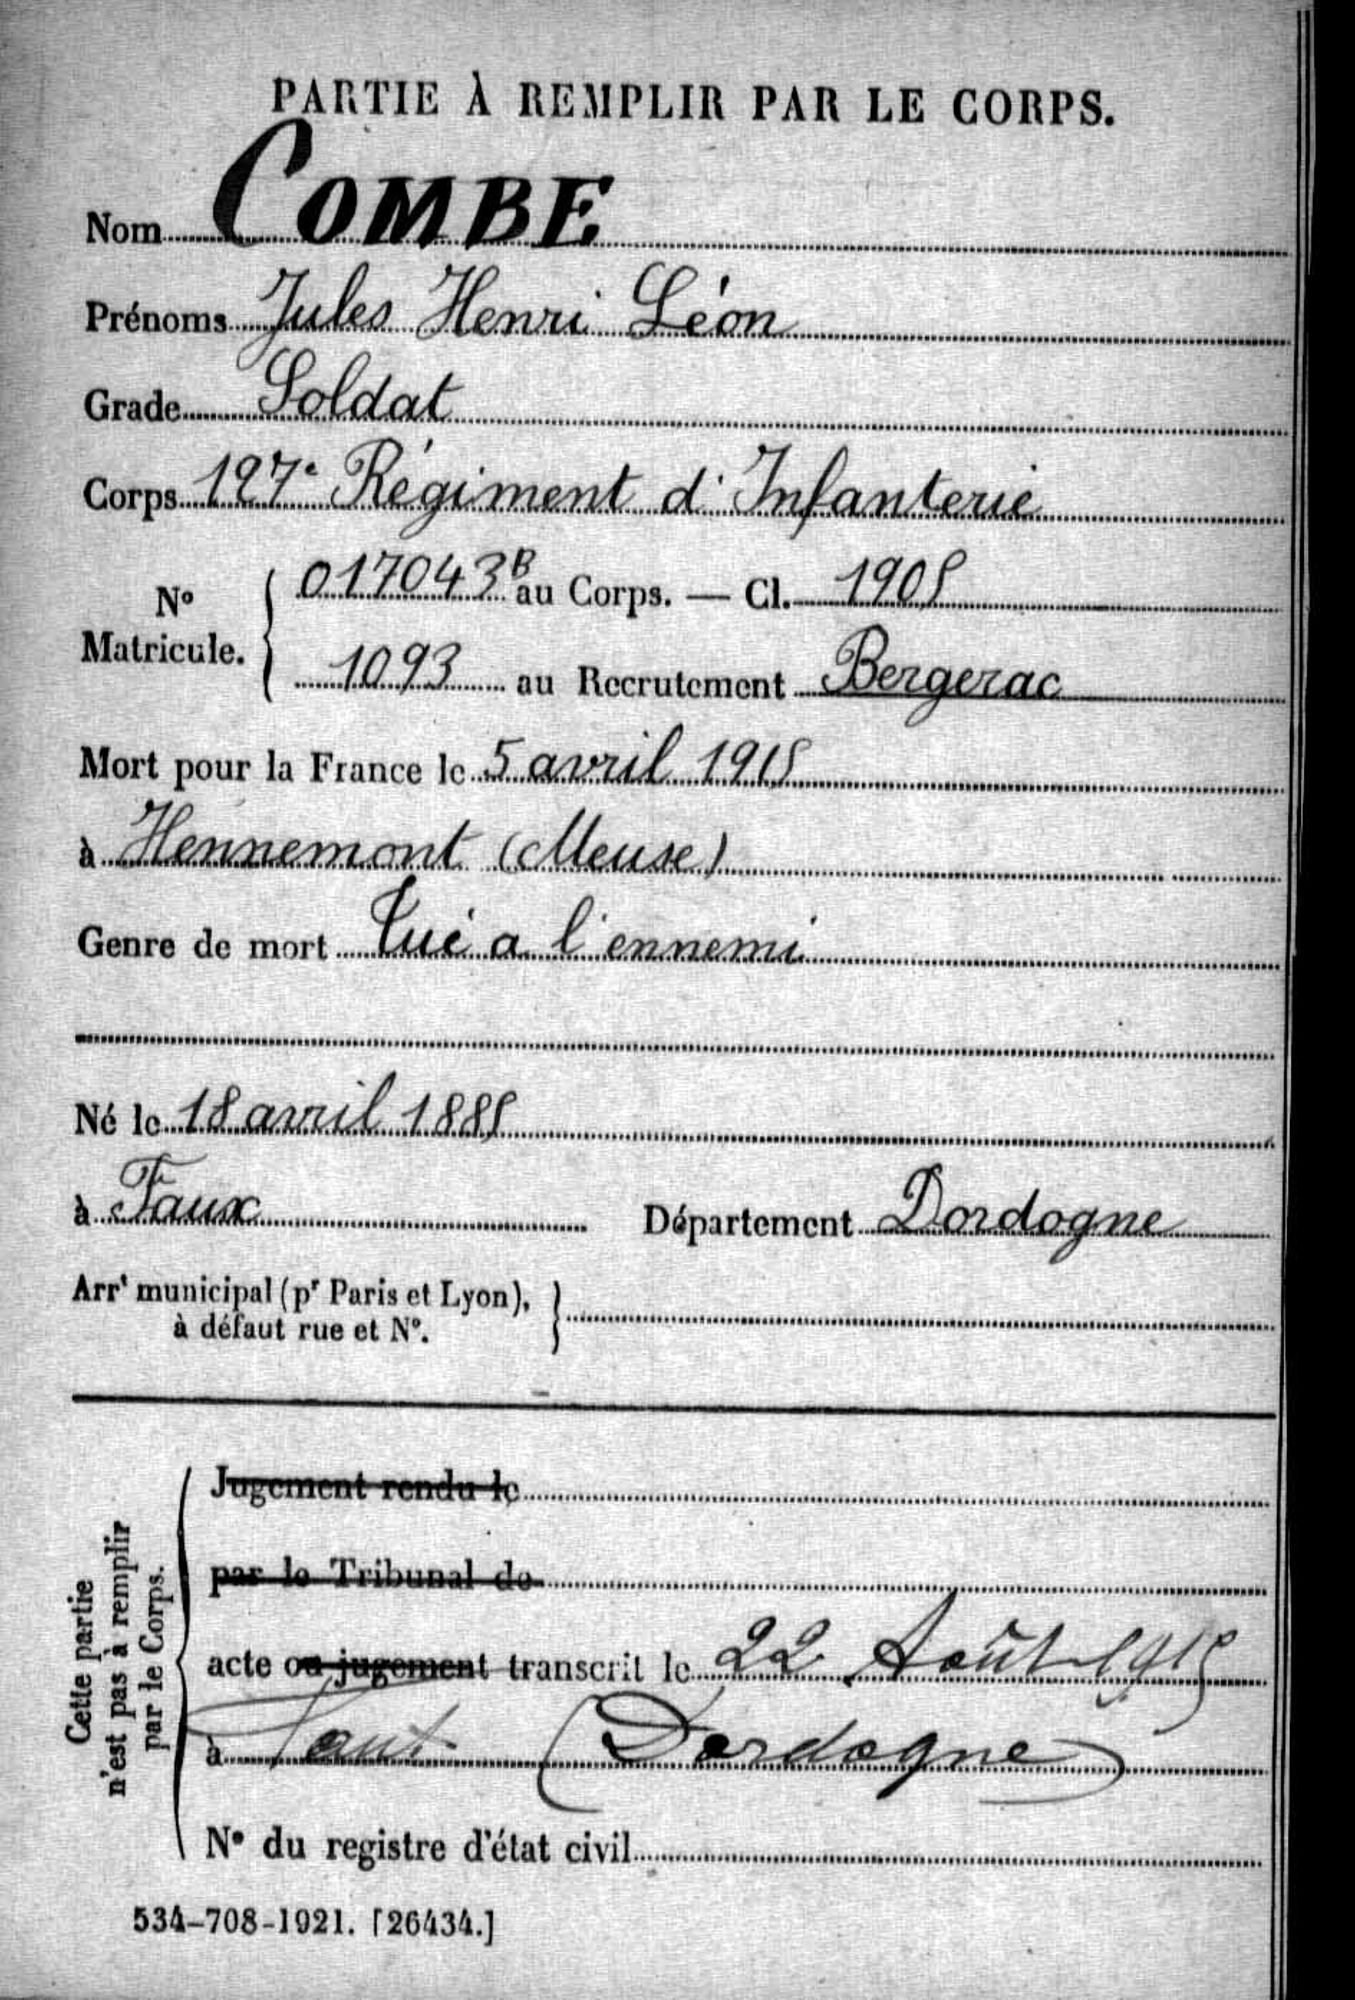 PARTIE À REMPLIR PAR LE CORPS.
Nom COMBE
Prénoms Jules Henri Léon
Grade Soldat
Corps 127e Régiment d'Infanterie
N° Matricule. { 017043B au Corps. — Cl. 1905
1093 au Recrutement Bergerac
Mort pour la France le 5 avril 1915
à Hennemont (Meuse)
Genre de mort Tué a l'ennemi
Né le 18 avril 1885
à Faux Département Dordogne
Arrt municipal (pr Paris et Lyon), }
à défaut rue et N°.
Cette partie
n'est pas à remplir
par le Corps.
Jugement rendu le
par le Tribunal de
acte ou jugement transcrit le 22 Août 1915
à Faux (Dordogne)
N° du registre d'état civil
534-708-1921. [26434.]